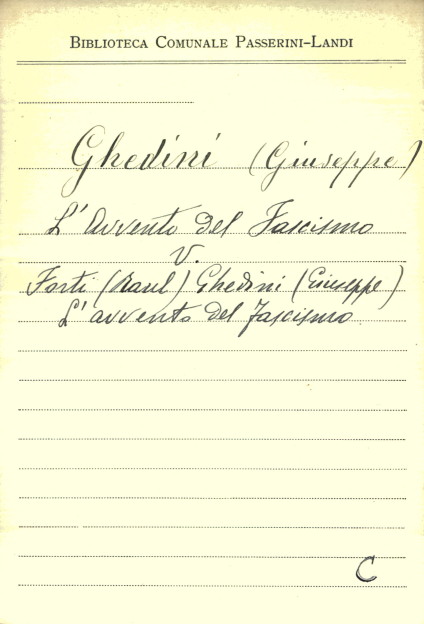 BIBLIOTECA COMUNALE PASSERINI-LANDI
Ghedini (Giuseppe)
L'Avvento del Fascismo
V.
Forti (Raul) Ghedini (Giuseppe)
L'avvento del Fascismo
C